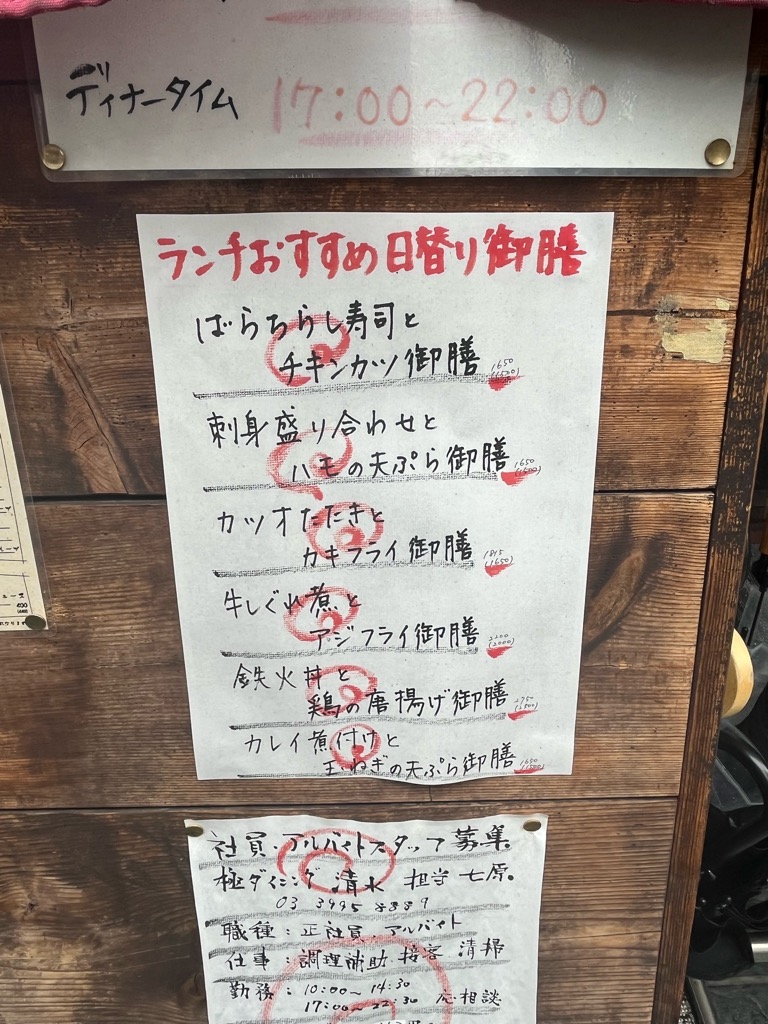 ディナータイム 17:00~22:00
ランチおすすめ日替り御膳
ばらちらし寿司と
チキンカツ御膳 1650 (1500)
刺身盛り合わせと
ハモの天ぷら御膳 1650 (1500)
カツオたたきと
カキフライ御膳 1815 (1650)
牛しぐれ煮と
アジフライ御膳 2200 (2000)
鉄火丼と
鶏の唐揚げ御膳 2750 (2500)
カレイ煮付けと
玉ねぎの天ぷら御膳 1650 (1500)
社員・アルバイトスタッフ募集
極ダイニング 清水 担当 七原。
03 3995 8889
職種:正社員 アルバイト
仕事:調理補助 接客 清掃
勤務:10:00~14:30
17:00~22:30 応相談